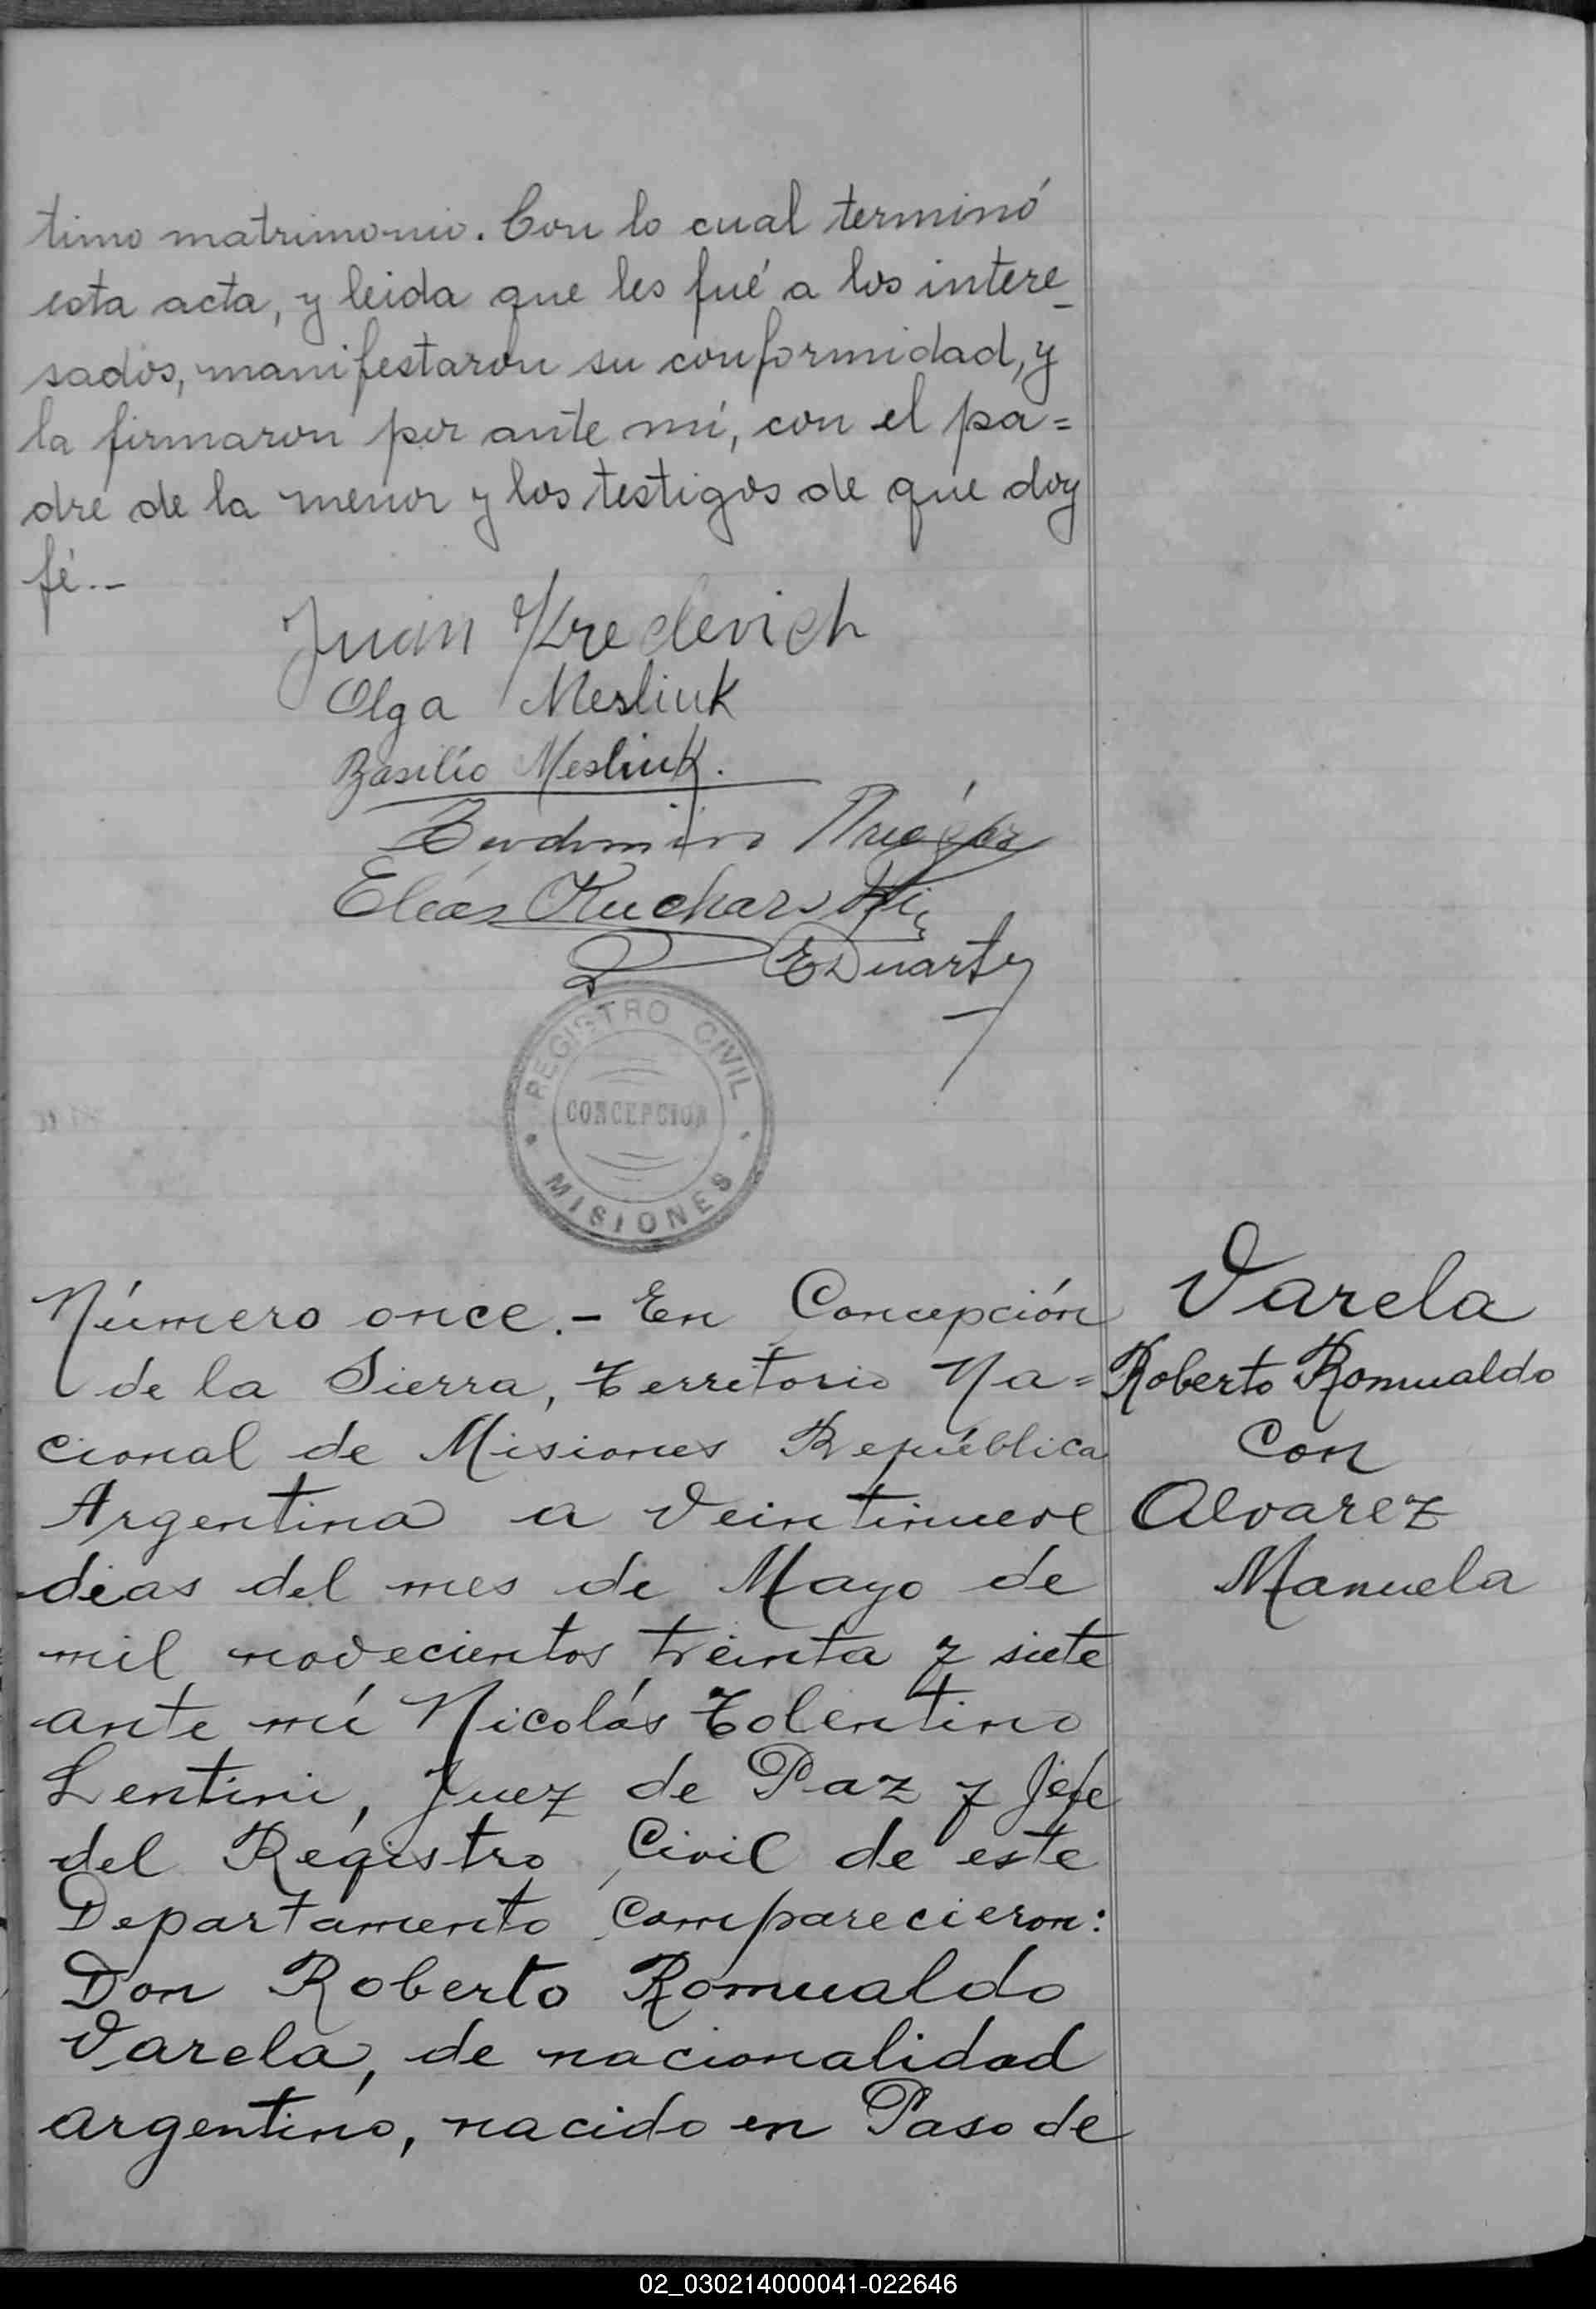 timo matrimonio. Con lo cual terminó
esta acta, y leida que les fué a los intere_
sados, manifestaron su conformidad, y
la firmaron por ante mí, con el pa=
dre de la menor y los testigos de que doy
fé.--
Juan Kredevich
Olga Mesliuk
Basilio Mesliuk.
Elías Kucharski
EDuarte
REGISTRO CIVIL
CONCEPCION
MISIONES
Número once.- En Concepción
de la Sierra, Territorio Na=
cional de Misiones República
Argentina a veintinueve
dias del mes de Mayo de
mil novecientos treinta y siete
ante mí Nicolás Tolentino
Lentini, Juez de Paz y Jefe
del Registro Civil de este
Departamento comparecieron:
Don Roberto Romualdo
Varela, de nacionalidad
argentino, nacido en Paso de
Varela
Roberto Romualdo
con
Alvarez
Manuela
02_030214000041-022646